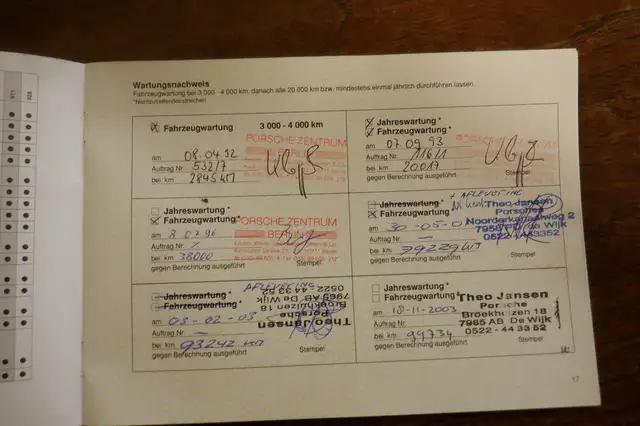 Wartungsnachweis
Fahrzeugwartung bei 3 000 - 4 000 km, danach alle 20 000 km bzw. mindestens einmal jährlich durchführen lassen.
*Nichtzutreffendes streichen
Fahrzeugwartung 3 000 - 4 000 km
PORSCHE ZENTRUM
am 08.04.92
Auftrag Nr. 532/7
bei km 2845 KM
gegen Berechnung ausgeführt Stempel
Jahreswartung*
Fahrzeugwartung*
PORSCHE ZENTRUM
am 07.09.93
Auftrag Nr. 116/1
bei km 20017
gegen Berechnung ausgeführt
Jahreswartung*
Fahrzeugwartung*
PORSCHE ZENTRUM
BERLIN
am
Auftrag Nr.
bei km 38000
gegen Berechnung ausgeführt Stempel
+ AFLEVERING
Jahreswartung*
Fahrzeugwartung*
Theo Jansen
Porsche
7956
De Wijk
0522
am 30-05-0
Auftrag Nr. —
bei km 79229 KM
gegen Berechnung ausgeführt Stempel
AFLEVERING
Jahreswartung*
Fahrzeugwartung*
am 08-02-03
Auftrag Nr. —
bei km 93242 KM
gegen Berechnung ausgeführt Stempel
Theo Jansen
Porsche
Broekhuizen 18
7965 AB De Wijk
0522 - 44 33 52
Jahreswartung*
Fahrzeugwartung*
Theo Jansen
Porsche
Broekhuizen 18
7965 AB De Wijk
0522 - 44 33 52
am 18-11-2003
Auftrag Nr.
bei km 99734
gegen Berechnung ausgeführt Stempel
17